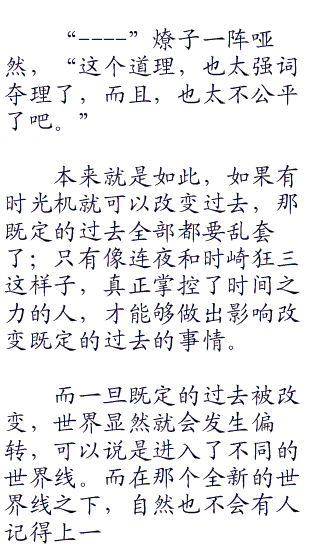 “----”燎子一阵哑
然，“这个道理，也太强词
夺理了，而且，也太不公平
了吧。”
本来就是如此，如果有
时光机就可以改变过去，那
既定的过去全部都要乱套
了；只有像连夜和时崎狂三
这样子，真正掌控了时间之
力的人，才能够做出影响改
变既定的过去的事情。
而一旦既定的过去被改
变，世界显然就会发生偏
转，可以说是进入了不同的
世界线。而在那个全新的世
界线之下，自然也不会有人
记得上一